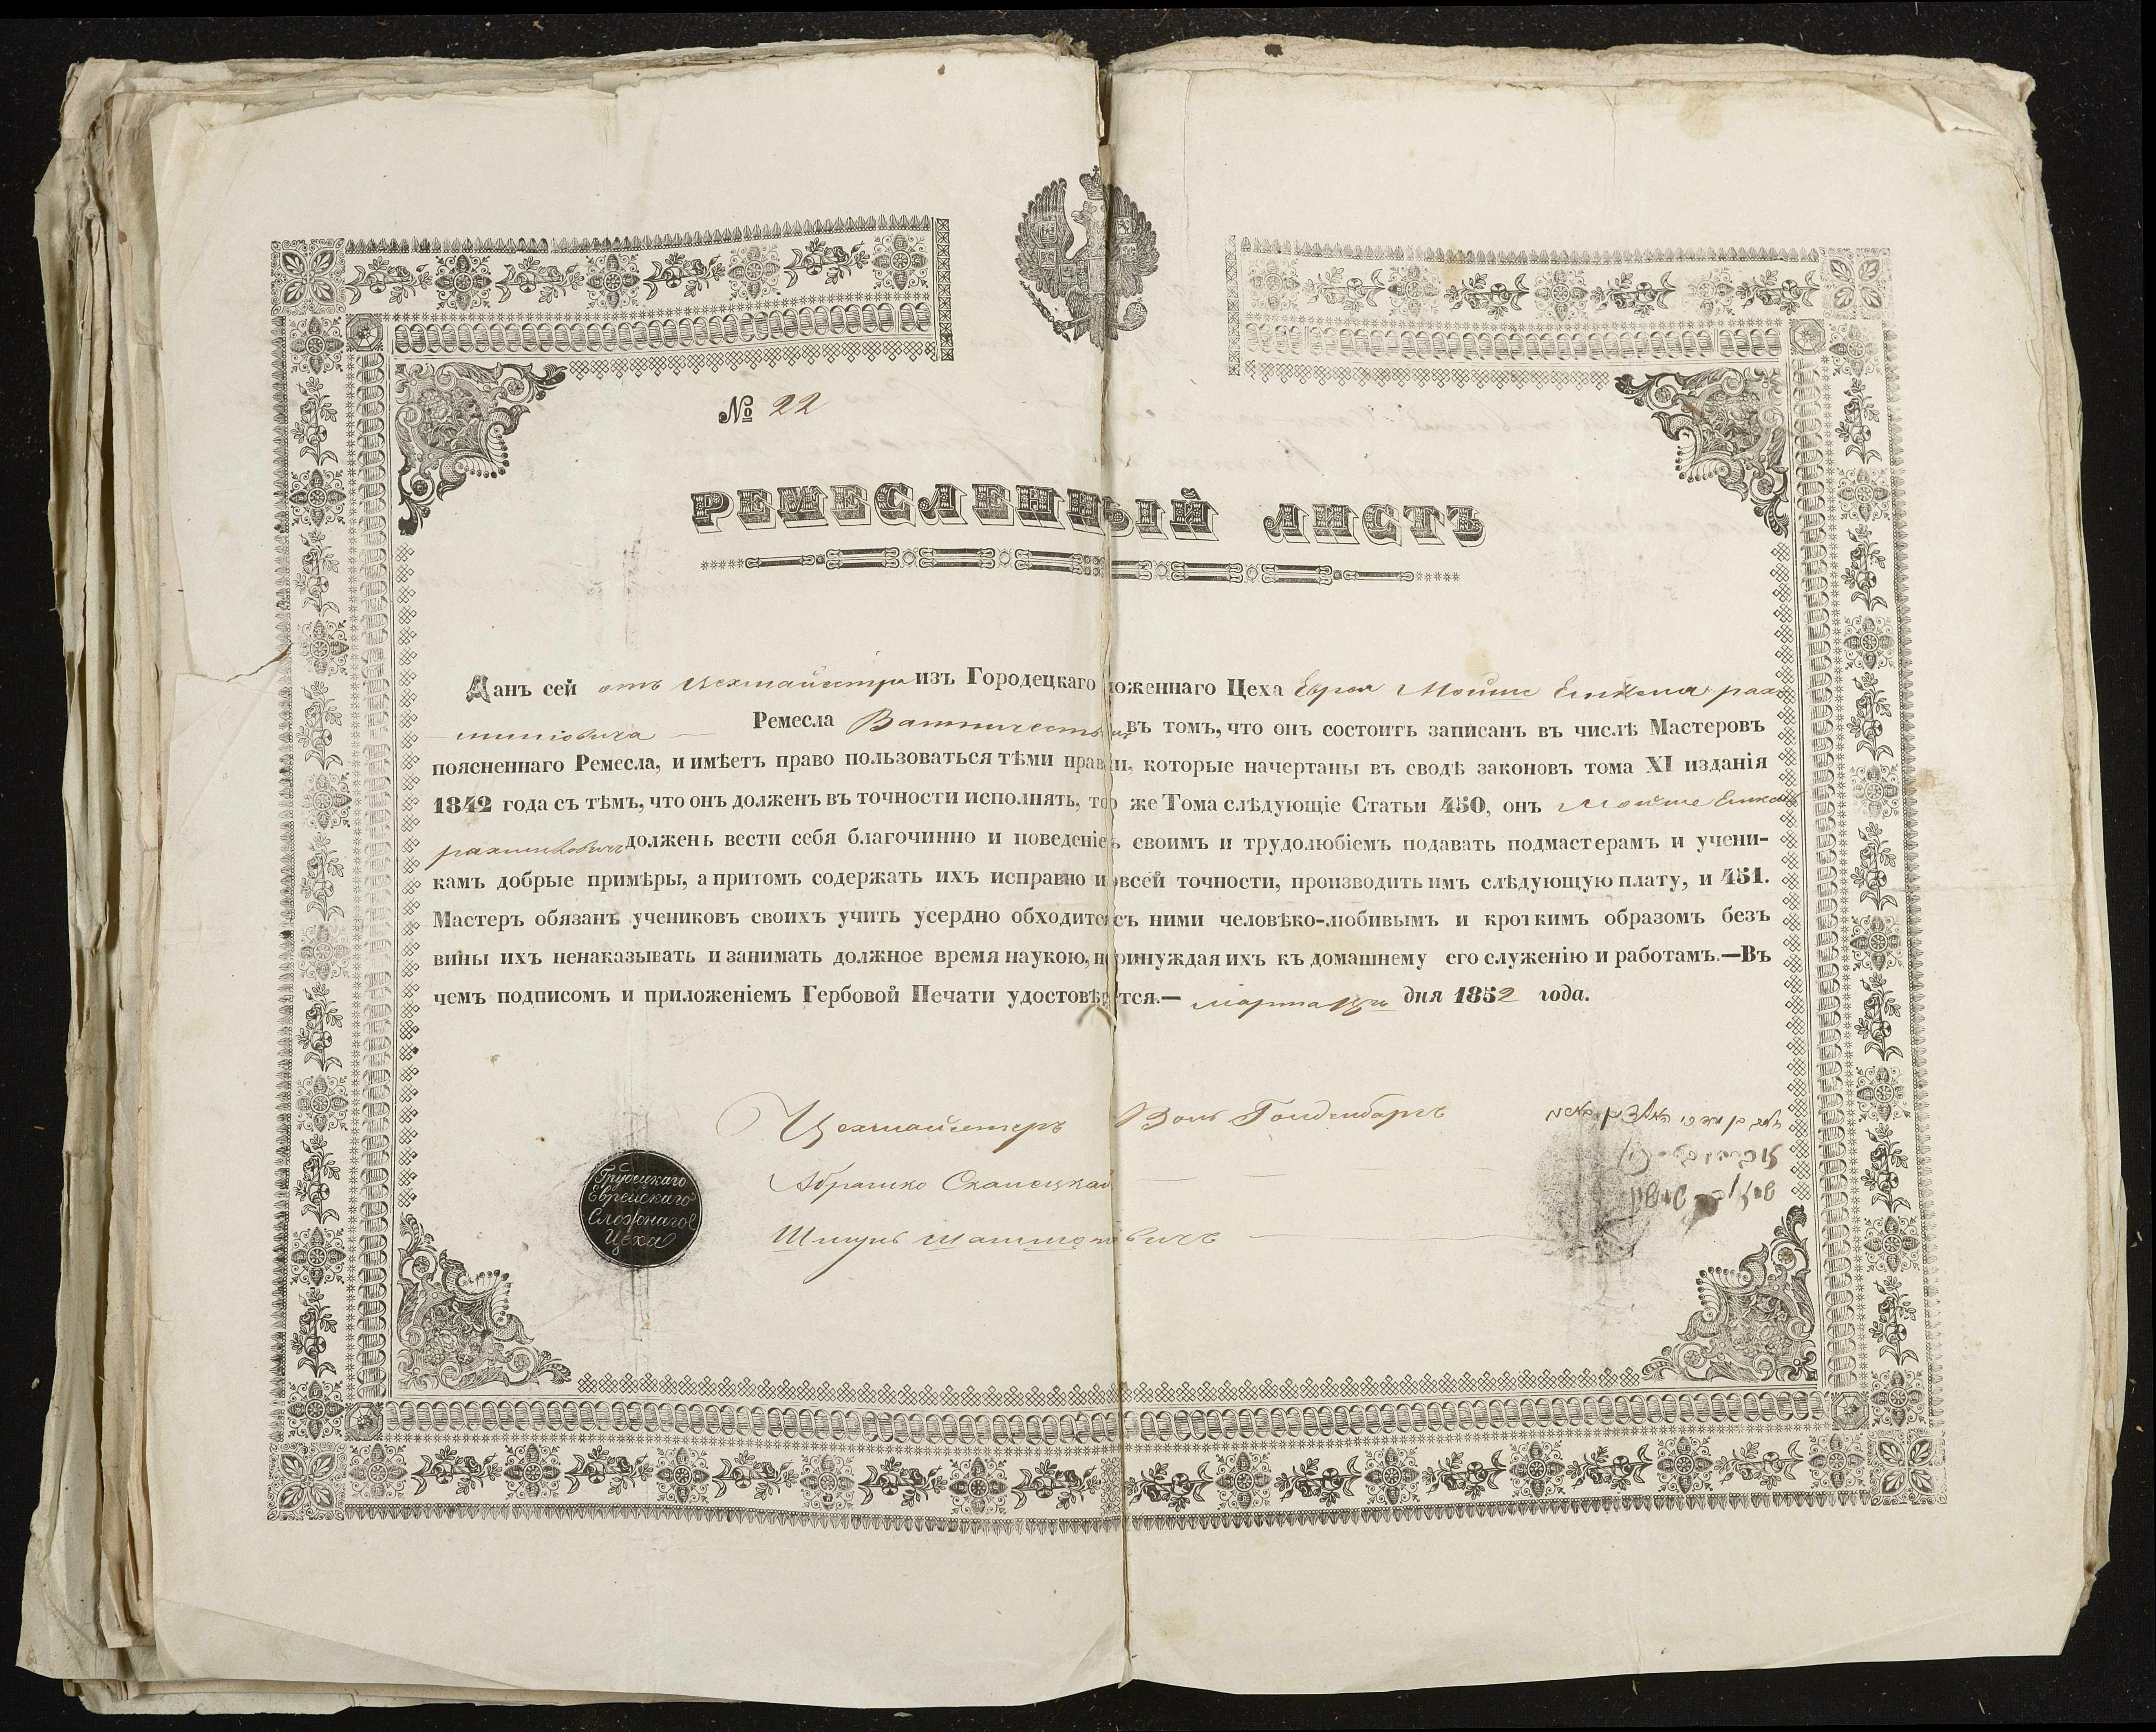 № 22
РЕМЕСЛЕННЫЙ ЛИСТЪ
Данъ сей отъ Цехмайстра изъ Городецкаго ложеннаго Цеха Еврея Мойше
Ремесла въ томъ, что онъ состоитъ записанъ въ числѣ Мастеровъ
поясненнаго Ремесла, и имѣетъ право пользоваться тѣми прав и, которые начертаны въ сводѣ законовъ тома XI изданія
1842 года съ тѣмъ, что онъ долженъ въ точности исполнять, то же Тома слѣдующіе Статьи 450, онъ Мойше
долженъ вести себя благочинно и поведеніе ъ своимъ и трудолюбіемъ подавать подмастерамъ и учени-
камъ добрые примѣры, а притомъ содержать ихъ исправно и овсей точности, производить имъ слѣдующую плату, и 451.
Мастеръ обязанъ учениковъ своихъ учить усердно обходитс съ ними человѣко-любивымъ и кроткимъ образомъ безъ
вины ихъ ненаказывать и занимать должное время наукою, н ринуждая ихъ къ домашнему его служенію и работамъ.—Въ
чемъ подписомъ и приложеніемъ Гербовой Печати удостовѣр тся.— марта дня 1852 года.
Цехмайстеръ Воль Гольденбергъ
Абрашко
Шмуль
Еврейскаго
Сложнаго
Цеха